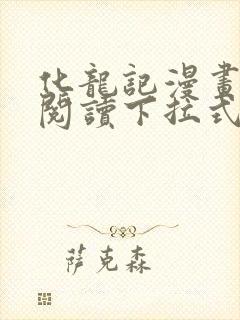 化龍記漫畫
閱讀下拉式
萨克森